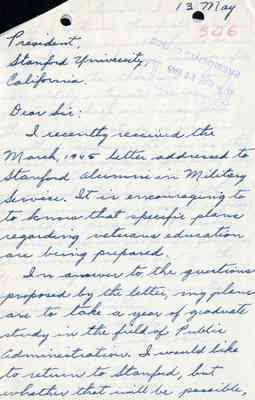 13 May
506
President,
Stanford University,
California.
Dear Sir:
I recently received the
March, 1945 letter addressed to
Stanford Alumni in Military
Service. It is encouraging to
to know that specific plans
regarding veterans education
are being prepared.
In answer to the questions
proposed by the letter, my plans
are to take a year of graduate
study in the field of Public
Administration. I would like
to return to Stanford, but
whether that will be possible,